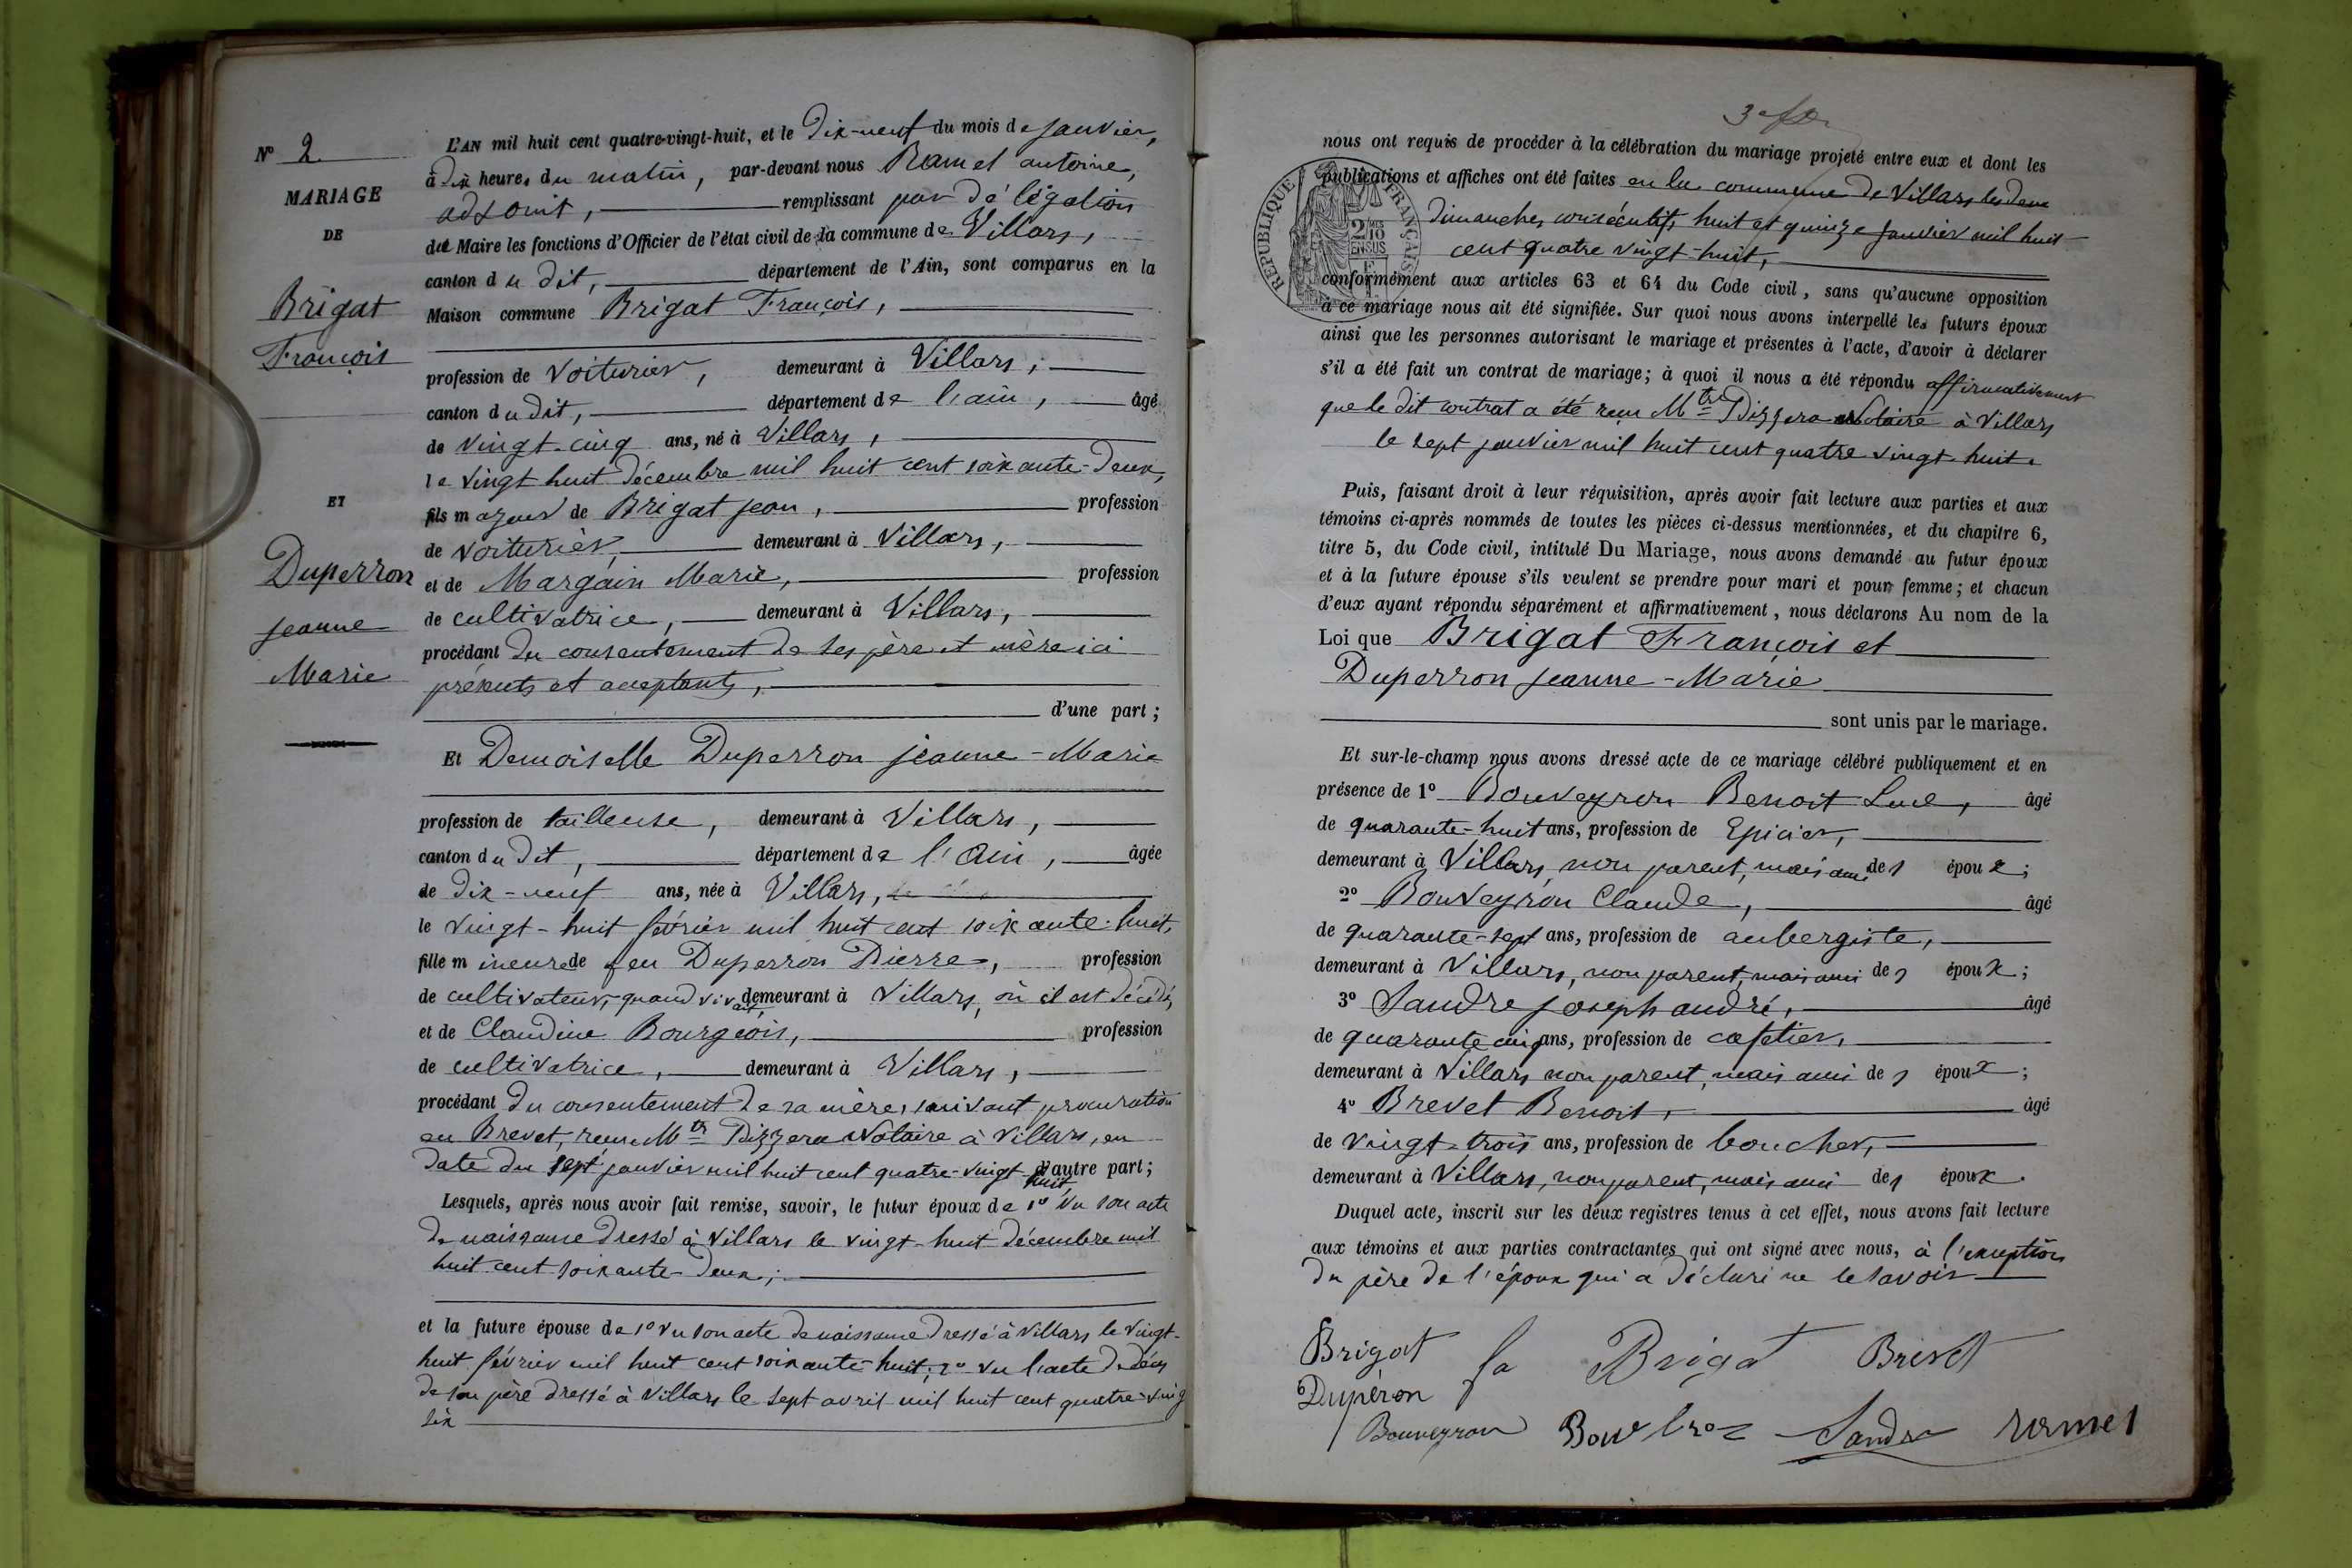 N° 2
MARIAGE
DE
Brigat
François
ET
Duperron
jeanne
Marie
L'AN mil huit cent quatre-vingt-huit, et le Dix-neuf du mois de janvier,
à dix heures du matin, par-devant nous Ramel antoine,
adjoint, remplissant par délégation
du Maire les fonctions d'Officier de l'état civil de la commune de Villars,
canton du dit, département de l'Ain, sont comparus en la
Maison commune Brigat François,
profession de voiturier, demeurant à Villars,
canton du dit, département de l'ain, âgé
de vingt-cinq ans, né à Villars,
le vingt huit décembre mil huit cent soixante-deux,
fils majeur de Brigat jean, profession
de voiturier, demeurant à Villars,
et de Margain Marie, profession
de cultivatrice, demeurant à Villars,
procédant du consentement de ses père et mère ici
présents et acceptants,
d'une part;
Et Demoiselle Duperron jeanne-Marie
profession de tailleuse, demeurant à Villars,
canton du dit, département de l'Ain, âgée
de dix-neuf ans, née à Villars,
le vingt-huit février mil huit cent soixante-huit,
fille mineure de feu Duperron Pierre, profession
de cultivateur, quand vivant, demeurant à Villars, où il est décédé,
et de Claudine Bourgeois, profession
de cultivatrice, demeurant à Villars,
procédant du consentement de sa mère, suivant procuration
en Brevet, reçue Mtr Dizzera Notaire à Villars, en
date du sept janvier mil huit cent quatre-vingt huit, d'autre part;
Lesquels, après nous avoir fait remise, savoir, le futur époux de 1° Vu son acte
de naissance dressé à Villars le vingt-huit décembre mil
huit cent soixante-deux;
et la future épouse de 1° Vu son acte de naissance dressé à Villars le vingt-
huit février mil huit cent soixante-huit; 2° vu l'acte de décès
de son père dressé à Villars le sept avril mil huit cent quatre-ving
six
nous ont requis de procéder à la célébration du mariage projeté entre eux et dont les
publications et affiches ont été faites en la commune de Villars les deux
dimanches consécutifs, huit et quinze janvier mil huit
cent quatre vingt-huit,
conformément aux articles 63 et 64 du Code civil, sans qu'aucune opposition
à ce mariage nous ait été signifiée. Sur quoi nous avons interpellé les futurs époux
ainsi que les personnes autorisant le mariage et présentes à l'acte, d'avoir à déclarer
s'il a été fait un contrat de mariage; à quoi il nous a été répondu affirmativement
que le dit contrat a été reçu Mtre Dizzera Notaire à Villars
le sept janvier mil huit cent quatre-vingt-huit.
Puis, faisant droit à leur réquisition, après avoir fait lecture aux parties et aux
témoins ci-après nommés de toutes les pièces ci-dessus mentionnées, et du chapitre 6,
titre 5, du Code civil, intitulé Du Mariage, nous avons demandé au futur époux
et à la future épouse s'ils veulent se prendre pour mari et pour femme; et chacun
d'eux ayant répondu séparément et affirmativement, nous déclarons Au nom de la
Loi que Brigat François et
Duperron jeanne-Marie
sont unis par le mariage.
Et sur-le-champ nous avons dressé acte de ce mariage célébré publiquement et en
présence de 1° Bouveyron Benoit Luc, âgé
de quarante-huit ans, profession de Epicier,
demeurant à Villars, non parent, mais ami des époux;
2° Bouveyron Claude, âgé
de quarante-sept ans, profession de aubergiste,
demeurant à Villars, non parent, mais ami des époux;
3° Sandre joseph andré, âgé
de quarante cinq ans, profession de cafetier,
demeurant à Villars non parent, mais ami des époux;
4° Brevet Benoit, âgé
de vingt-trois ans, profession de boucher,
demeurant à Villars, non parent, mais ami des époux.
Duquel acte, inscrit sur les deux registres tenus à cet effet, nous avons fait lecture
aux témoins et aux parties contractantes qui ont signé avec nous, à l'exception
du père de l'époux qui a déclaré ne le savoir
Brigat fa Brigat Brevet
Dupéron
Bouveyron Sandre ramel
RÉPUBLIQUE FRANÇAISE
2/10 MES
EN SUS